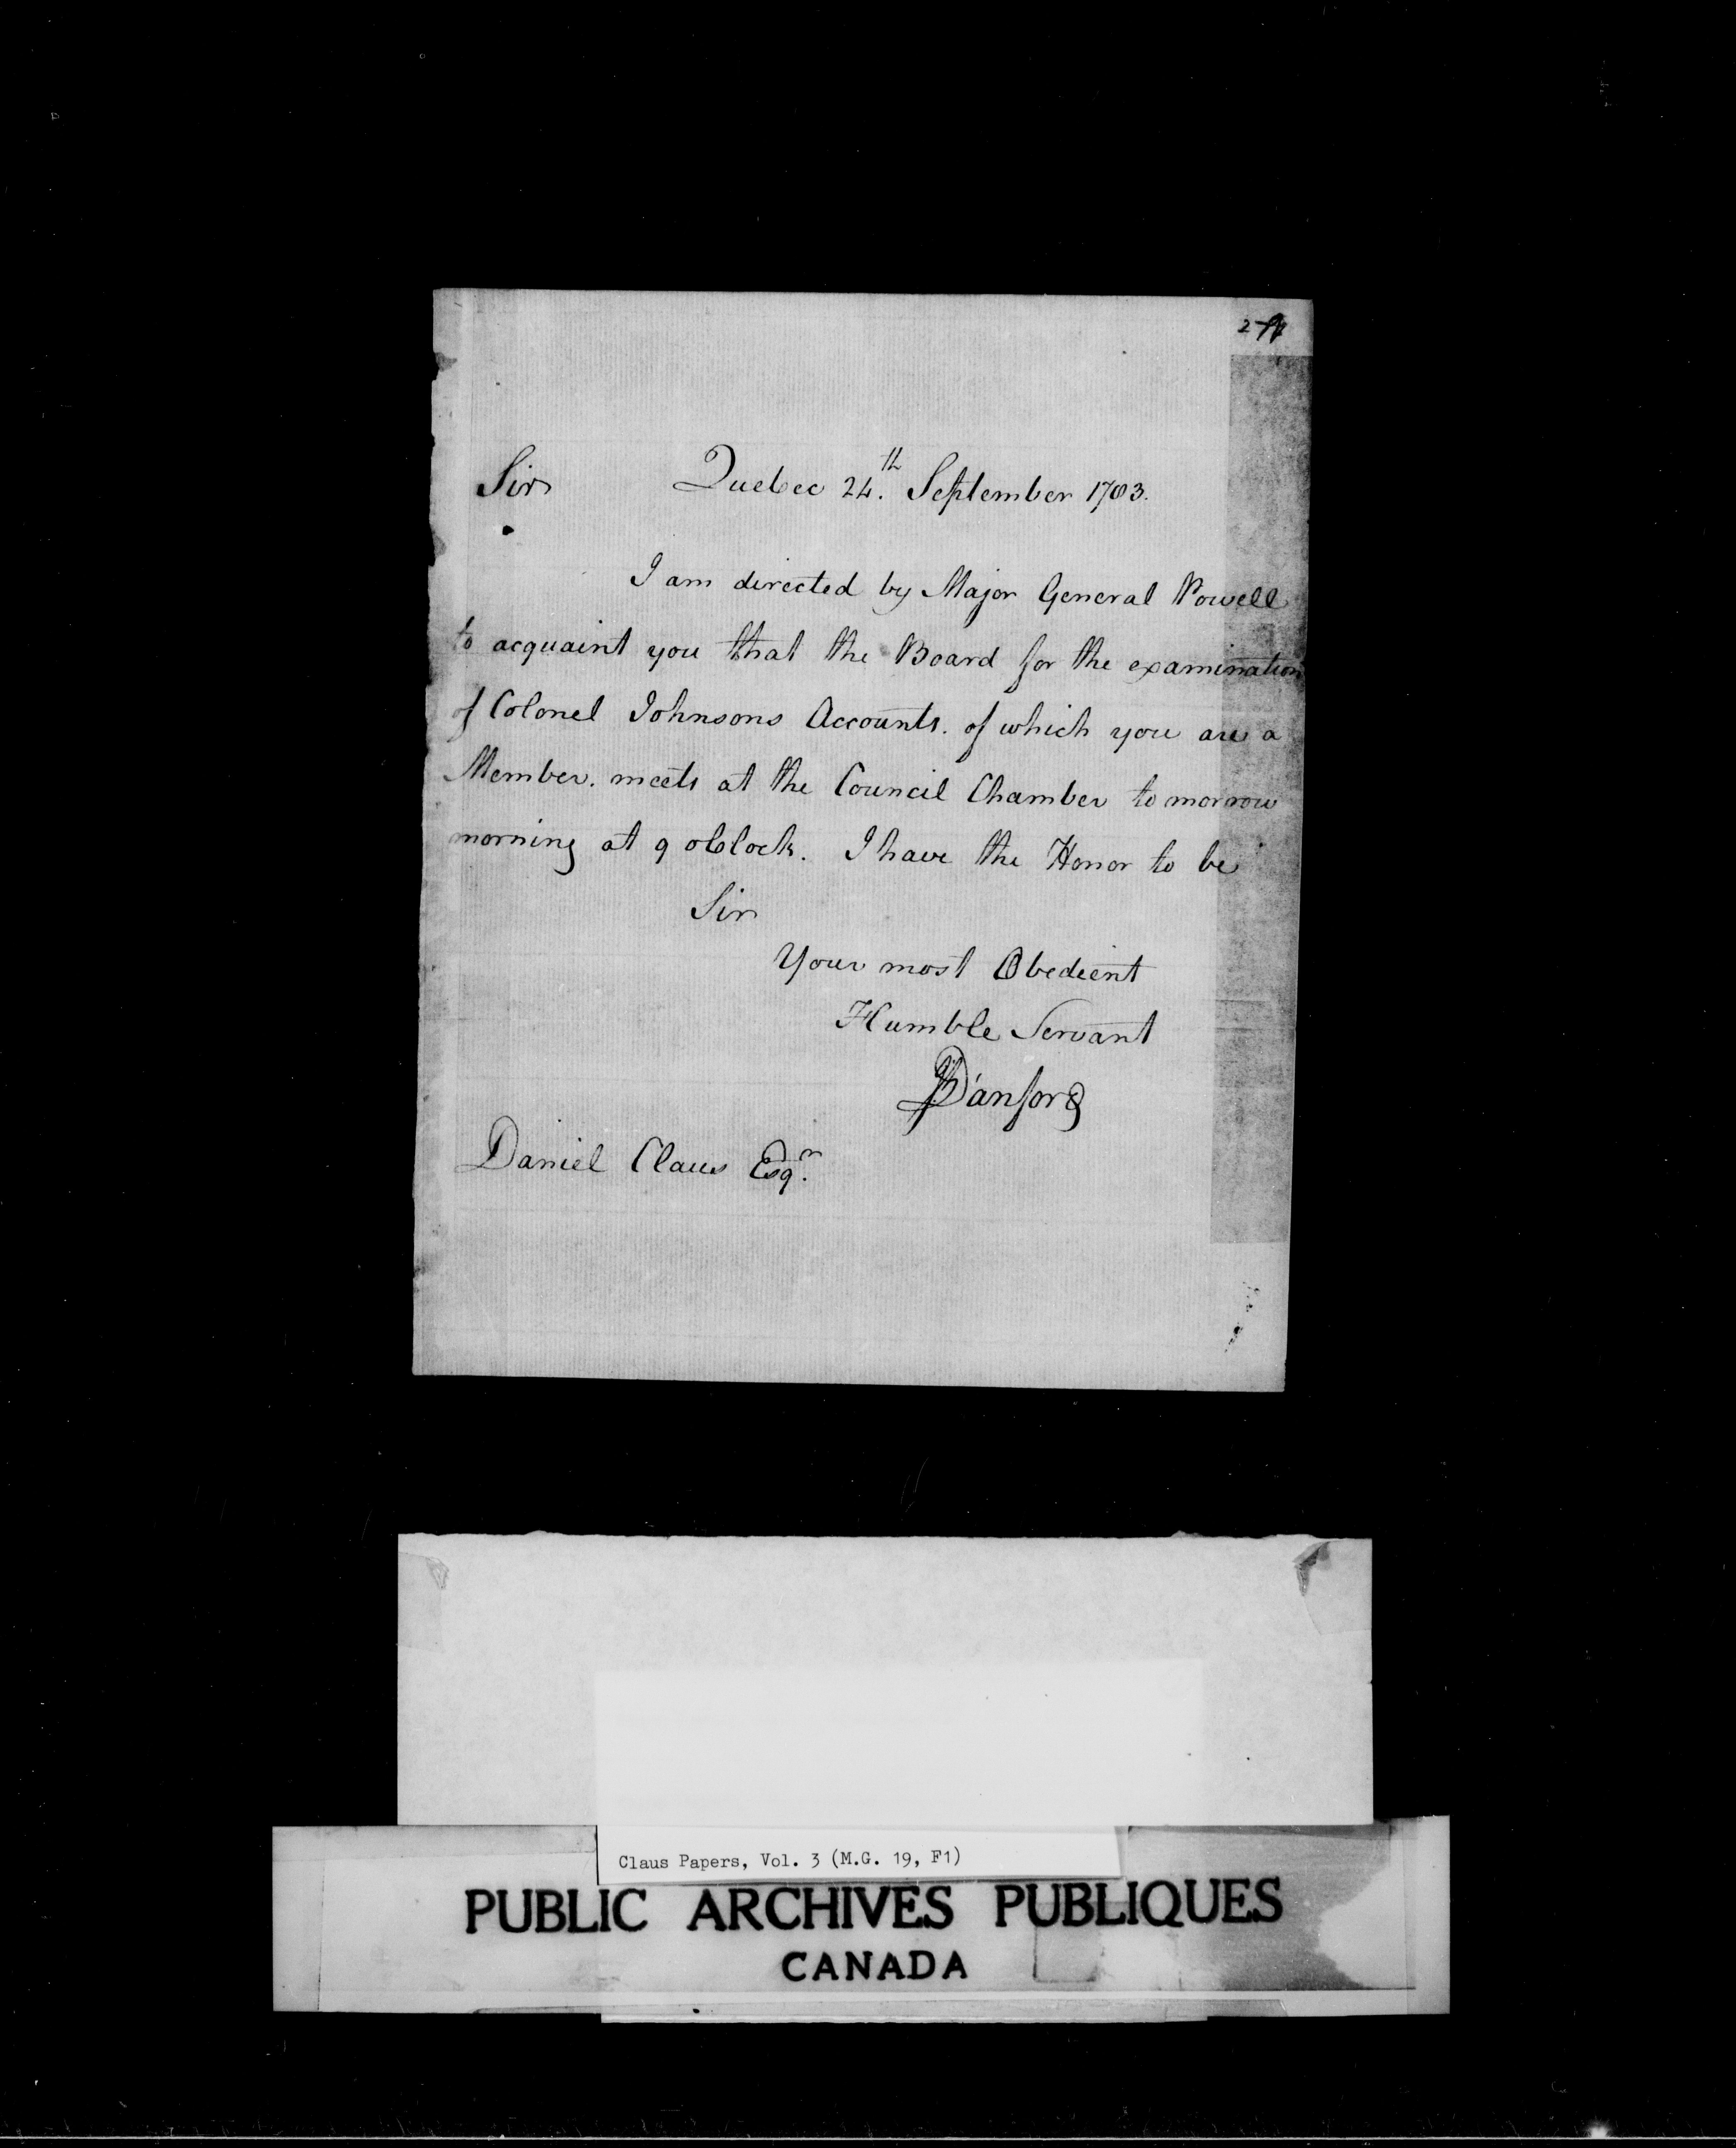 Sir Quebec 24th. September 1783.
I am directed by Major General Powell
to acquaint you that the Board for the examination
of Colonel Johnsons Accounts. of which you are a
Member. meets at the Council Chamber to morrow
morning at 9 oClock. I have the Honor to be
Sir
Your most Obedient
Humble Servant
Danford
Daniel Claus Esqr.
Claus Papers, Vol. 3 (M.G. 19, F1)
PUBLIC ARCHIVES PUBLIQUES
CANADA